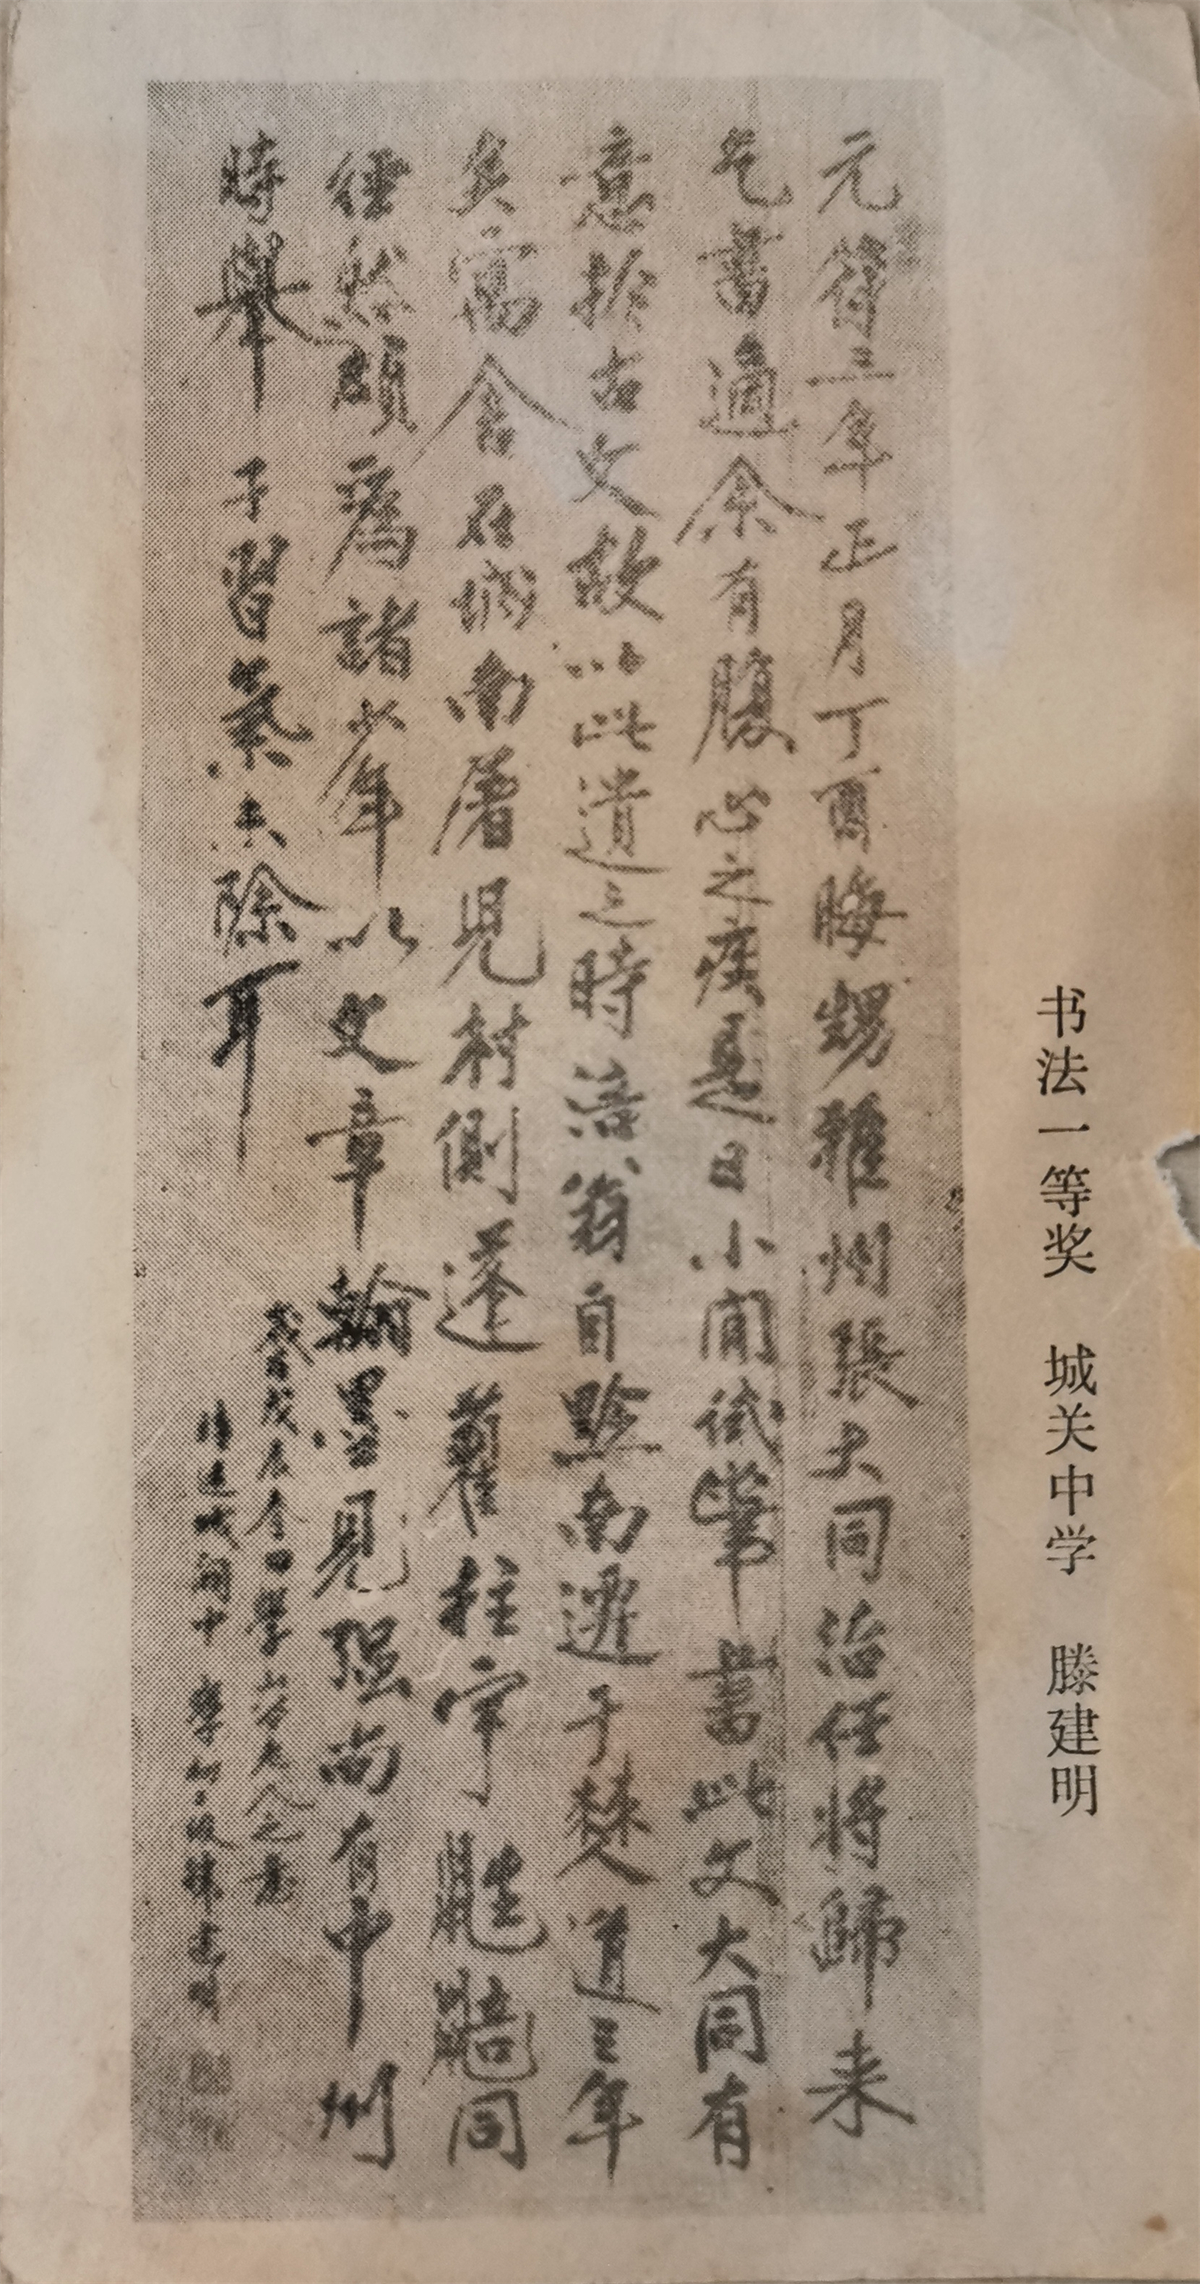 书法一等奖 城关中学 滕建明
元符三年正月丁酉晦甥雅州張大同治任将歸来
乞書適余有腹心之疾是日小閒試筆書此文大同有
意於古文故以此遺之時涪翁自黔南遷于僰道三年
矣寓舍在城南屠児村側蓬藋柱宇鼪鼯同
徑然頗為諸少年以文章翰墨見强尚有中州
時舉子習氣未除耳
歲戊辰冬日學山谷老人之意
滕建明